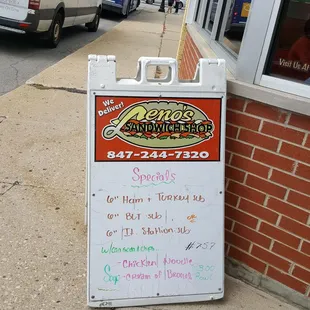 We Deliver!
Leno's
SANDWICH SHOP
847-244-7320
Specials
6" Ham + Turkey sub
6" BLT sub
6" It. Stallion sub
Chicken Noodle
Soup - Cream of Broccoli
Visit Us At